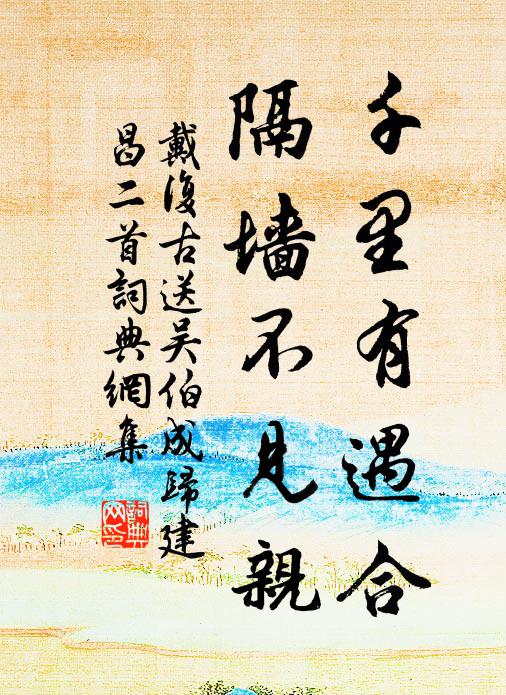 千里有遇合
隔墙不見親
戴復古送吴伯成歸建
昌二首詞典網集
詞典